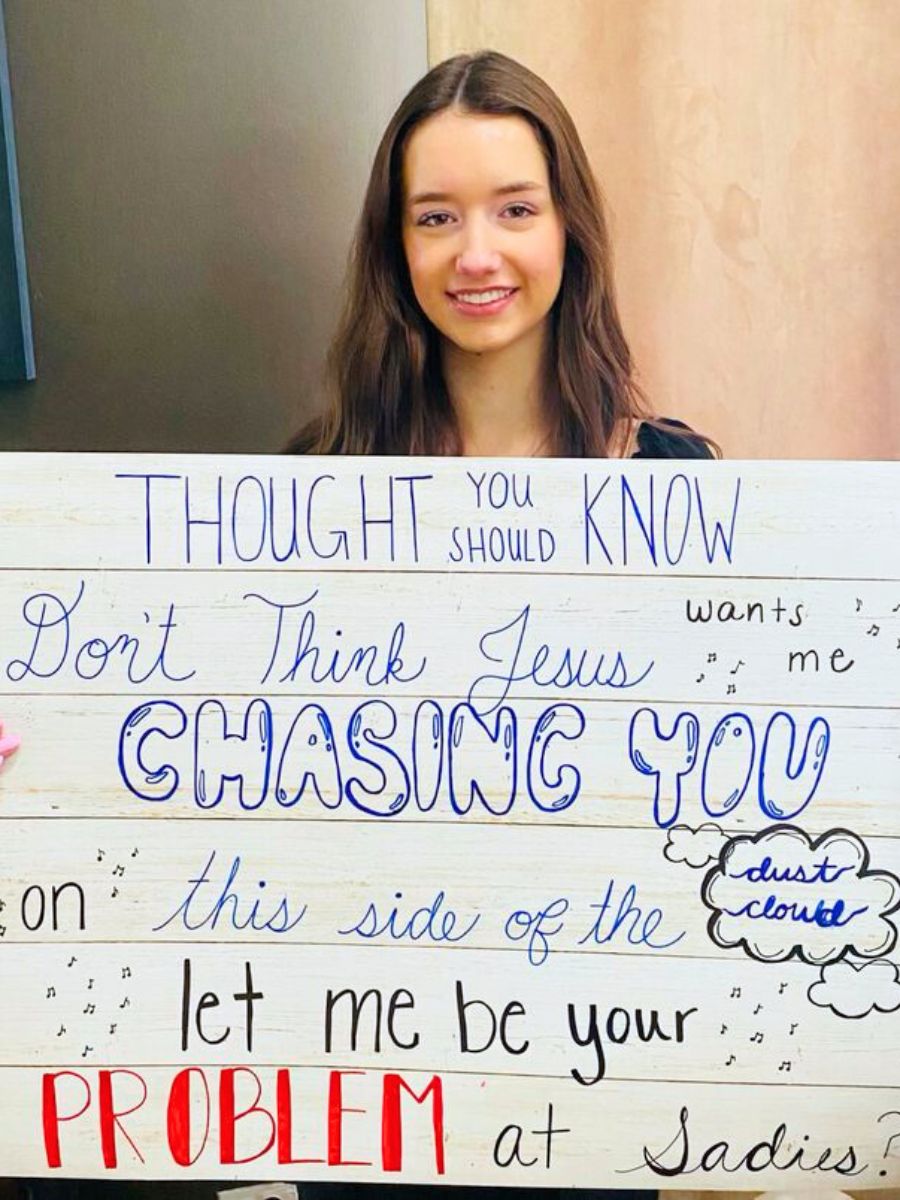 THOUGHT YOU SHOULD KNOW
Don't Think Jesus wants me
CHASING YOU
on this side of the dust cloud
let me be your
PROBLEM at Sadies?